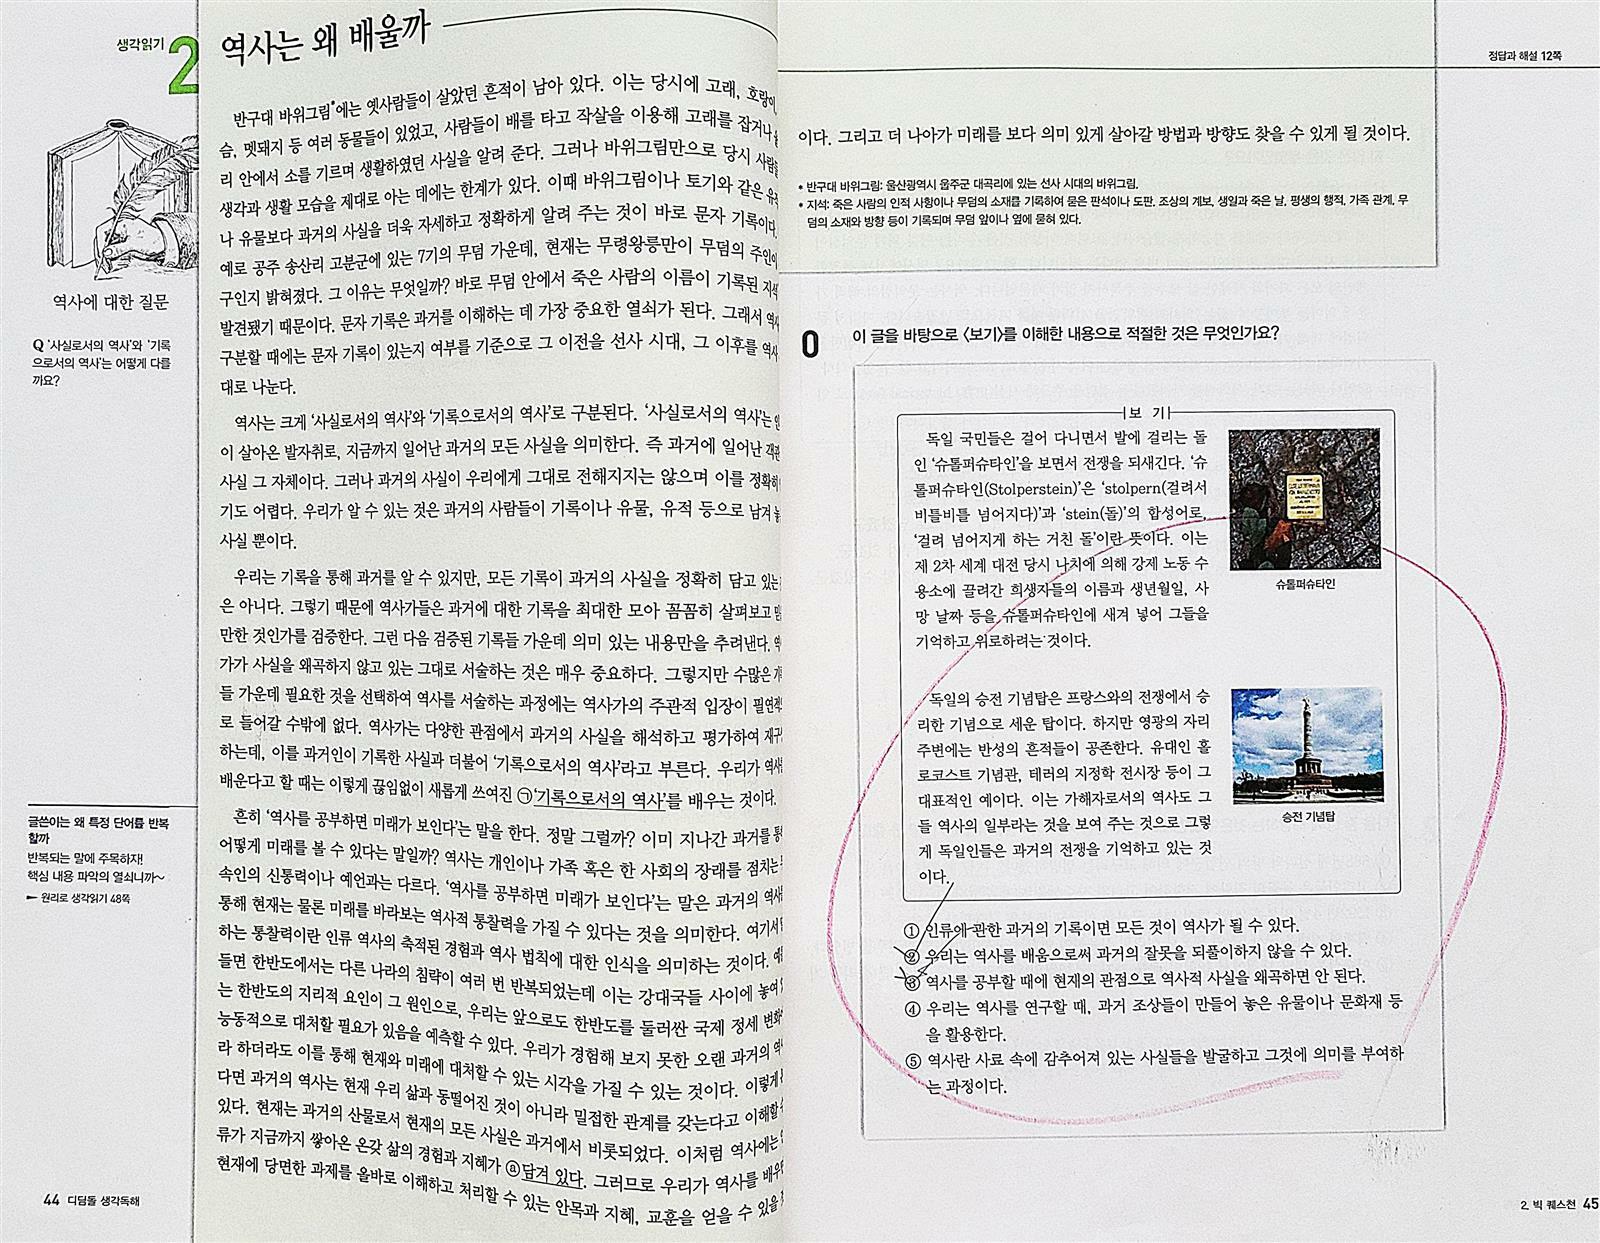 생각읽기 2
역사에 대한 질문
Q ‘사실로서의 역사’와 ‘기록
으로서의 역사’는 어떻게 다를
까요?
글쓴이는 왜 특정 단어를 반복
할까
반복되는 말에 주목하자!
핵심 내용 파악의 열쇠니까~
원리로 생각읽기 48쪽
44 디딤돌 생각독해
역사는 왜 배울까
반구대 바위그림*에는 옛사람들이 살았던 흔적이 남아 있다. 이는 당시에 고래, 호랑이,
슴, 멧돼지 등 여러 동물들이 있었고, 사람들이 배를 타고 작살을 이용해 고래를 잡거나
리 안에서 소를 기르며 생활하였던 사실을 알려 준다. 그러나 바위그림만으로 당시 사람들
생각과 생활 모습을 제대로 아는 데에는 한계가 있다. 이때 바위그림이나 토기와 같은 유
나 유물보다 과거의 사실을 더욱 자세하고 정확하게 알려 주는 것이 바로 문자 기록이다.
예로 공주 송산리 고분군에 있는 7기의 무덤 가운데, 현재는 무령왕릉만이 무덤의 주인이
구인지 밝혀졌다. 그 이유는 무엇일까? 바로 무덤 안에서 죽은 사람의 이름이 기록된 지석
발견됐기 때문이다. 문자 기록은 과거를 이해하는 데 가장 중요한 열쇠가 된다. 그래서 역사
구분할 때에는 문자 기록이 있는지 여부를 기준으로 그 이전을 선사 시대, 그 이후를 역사
대로 나눈다.
역사는 크게 ‘사실로서의 역사’와 ‘기록으로서의 역사’로 구분된다. ‘사실로서의 역사’는
이 살아온 발자취로, 지금까지 일어난 과거의 모든 사실을 의미한다. 즉 과거에 일어난 객관
사실 그 자체이다. 그러나 과거의 사실이 우리에게 그대로 전해지지는 않으며 이를 정확히
기도 어렵다. 우리가 알 수 있는 것은 과거의 사람들이 기록이나 유물, 유적 등으로 남겨
사실 뿐이다.
우리는 기록을 통해 과거를 알 수 있지만, 모든 기록이 과거의 사실을 정확히 담고 있는
은 아니다. 그렇기 때문에 역사가들은 과거에 대한 기록을 최대한 모아 꼼꼼히 살펴보고
만한 것인가를 검증한다. 그런 다음 검증된 기록들 가운데 의미 있는 내용만을 추려낸다. 역
가가 사실을 왜곡하지 않고 있는 그대로 서술하는 것은 매우 중요하다. 그렇지만 수많은
들 가운데 필요한 것을 선택하여 역사를 서술하는 과정에는 역사가의 주관적 입장이 필연적
로 들어갈 수밖에 없다. 역사가는 다양한 관점에서 과거의 사실을 해석하고 평가하여 재구
하는데, 이를 과거인이 기록한 사실과 더불어 ‘기록으로서의 역사’라고 부른다. 우리가 역사
배운다고 할 때는 이렇게 끊임없이 새롭게 쓰여진 ㉠‘기록으로서의 역사’를 배우는 것이다.
흔히 ‘역사를 공부하면 미래가 보인다’는 말을 한다. 정말 그럴까? 이미 지나간 과거를 통
어떻게 미래를 볼 수 있다는 말일까? 역사는 개인이나 가족 혹은 한 사회의 장래를 점치는
속인의 신통력이나 예언과는 다르다. ‘역사를 공부하면 미래가 보인다’는 말은 과거의 역사
통해 현재는 물론 미래를 바라보는 역사적 통찰력을 가질 수 있다는 것을 의미한다. 여기서
하는 통찰력이란 인류 역사의 축적된 경험과 역사 법칙에 대한 인식을 의미하는 것이다. 예
들면 한반도에서는 다른 나라의 침략이 여러 번 반복되었는데 이는 강대국들 사이에 놓여
는 한반도의 지리적 요인이 그 원인으로, 우리는 앞으로도 한반도를 둘러싼 국제 정세 변화
능동적으로 대처할 필요가 있음을 예측할 수 있다. 우리가 경험해 보지 못한 오랜 과거의 역
라 하더라도 이를 통해 현재와 미래에 대처할 수 있는 시각을 가질 수 있는 것이다. 이렇게
다면 과거의 역사는 현재 우리 삶과 동떨어진 것이 아니라 밀접한 관계를 갖는다고 이해할
있다. 현재는 과거의 산물로서 현재의 모든 사실은 과거에서 비롯되었다. 이처럼 역사에는
류가 지금까지 쌓아온 온갖 삶의 경험과 지혜가 ⓐ담겨 있다. 그러므로 우리가 역사를 배우
현재에 당면한 과제를 올바로 이해하고 처리할 수 있는 안목과 지혜, 교훈을 얻을 수 있을
정답과 해설 12쪽
이다. 그리고 더 나아가 미래를 보다 의미 있게 살아갈 방법과 방향도 찾을 수 있게 될 것이다.
* 반구대 바위그림: 울산광역시 울주군 대곡리에 있는 선사 시대의 바위그림.
* 지석: 죽은 사람의 인적 사항이나 무덤의 소재를 기록하여 묻은 판석이나 도판. 조상의 계보, 생일과 죽은 날, 평생의 행적, 가족 관계, 무
덤의 소재와 방향 등이 기록되며 무덤 앞이나 옆에 묻혀 있다.
0 이 글을 바탕으로 〈보기〉를 이해한 내용으로 적절한 것은 무엇인가요?
보 기
독일 국민들은 걸어 다니면서 발에 걸리는 돌
인 ‘슈톨퍼슈타인’을 보면서 전쟁을 되새긴다. ‘슈
톨퍼슈타인(Stolperstein)’은 ‘stolpern(걸려서
비틀비틀 넘어지다)’과 ‘stein(돌)’의 합성어로,
‘걸려 넘어지게 하는 거친 돌’이란 뜻이다. 이는
제 2차 세계 대전 당시 나치에 의해 강제 노동 수
용소에 끌려간 희생자들의 이름과 생년월일, 사
망 날짜 등을 슈톨퍼슈타인에 새겨 넣어 그들을
기억하고 위로하려는 것이다.
슈톨퍼슈타인
독일의 승전 기념탑은 프랑스와의 전쟁에서 승
리한 기념으로 세운 탑이다. 하지만 영광의 자리
주변에는 반성의 흔적들이 공존한다. 유대인 홀
로코스트 기념관, 테러의 지정학 전시장 등이 그
대표적인 예이다. 이는 가해자로서의 역사도 그
들 역사의 일부라는 것을 보여 주는 것으로 그렇
게 독일인들은 과거의 전쟁을 기억하고 있는 것
이다.
승전 기념탑
① 인류에 관한 과거의 기록이면 모든 것이 역사가 될 수 있다.
② 우리는 역사를 배움으로써 과거의 잘못을 되풀이하지 않을 수 있다.
③ 역사를 공부할 때에 현재의 관점으로 역사적 사실을 왜곡하면 안 된다.
④ 우리는 역사를 연구할 때, 과거 조상들이 만들어 놓은 유물이나 문화재 등
을 활용한다.
⑤ 역사란 사료 속에 감추어져 있는 사실들을 발굴하고 그것에 의미를 부여하
는 과정이다.
2. 빅 퀘스천 45